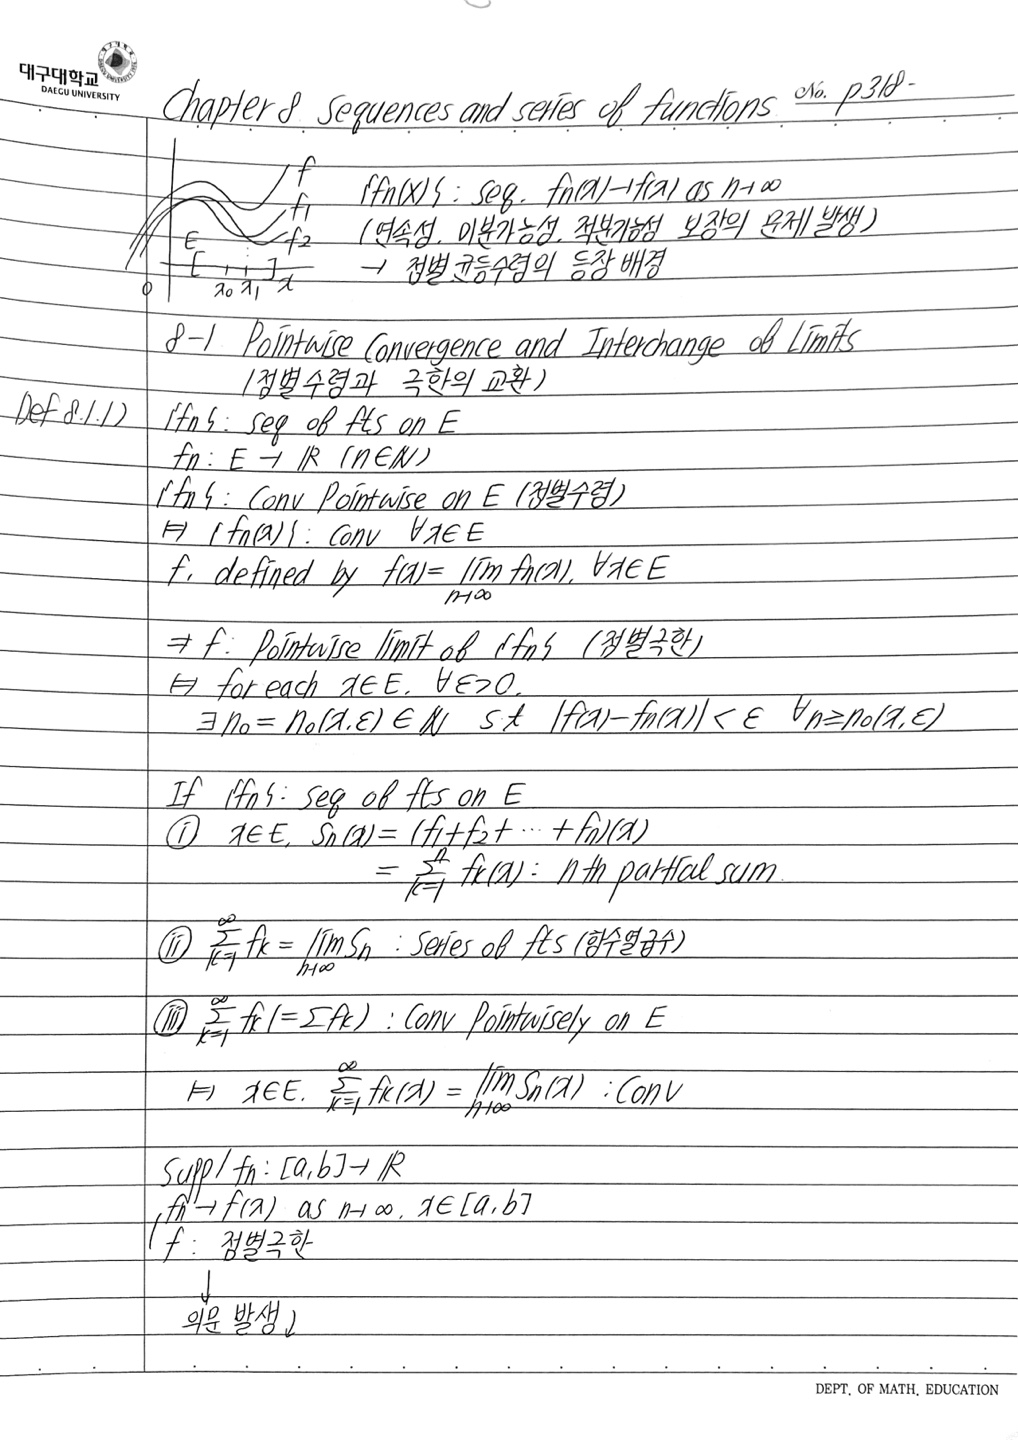 대구대학교
DAEGU UNIVERSITY
Chapter 8 Sequences and series of functions No. p318-
f
f1
f2
E
[ ]
0 x0 x1 x
{fn(x)}: seq. fn(x)→f(x) as n→∞
(연속성, 미분가능성, 적분가능성 보장의 문제 발생)
→ 점별, 균등수렴의 등장 배경
8-1 Pointwise Convergence and Interchange of Limits
(점별수렴과 극한의 교환)
Def 8.1.1) {fn}: seq of fts on E
fn: E → ℝ (n∈ℕ)
{fn}: Conv Pointwise on E (점별수렴)
⇔ {fn(x)}: Conv ∀x∈E
f, defined by f(x)= lim n→∞ fn(x), ∀x∈E
⇒ f: Pointwise limit of {fn} (점별극한)
⇔ for each x∈E, ∀ε>0,
∃n0 = n0(x,ε) ∈ ℕ s.t |f(x)-fn(x)| < ε ∀n≥n0(x,ε)
If {fn}: seq of fts on E
ⓘ x∈E, Sn(x) = (f1+f2+ ⋯ +fn)(x)
= Σ k=1 n fk(x): nth partial sum.
ⓘⓘ Σ k=1 ∞ fk = lim n→∞ Sn : Series of fts (함수열급수)
ⓘⓘⓘ Σ k=1 ∞ fk (=Σfk) : Conv Pointwisely on E
⇔ x∈E, Σ k=1 ∞ fk(x) = lim n→∞ Sn(x) : Conv
Supp/ fn: [a,b] → ℝ
fn → f(x) as n→∞, x∈[a,b]
f: 점별극한
↓
의문 발생↓
DEPT. OF MATH. EDUCATION